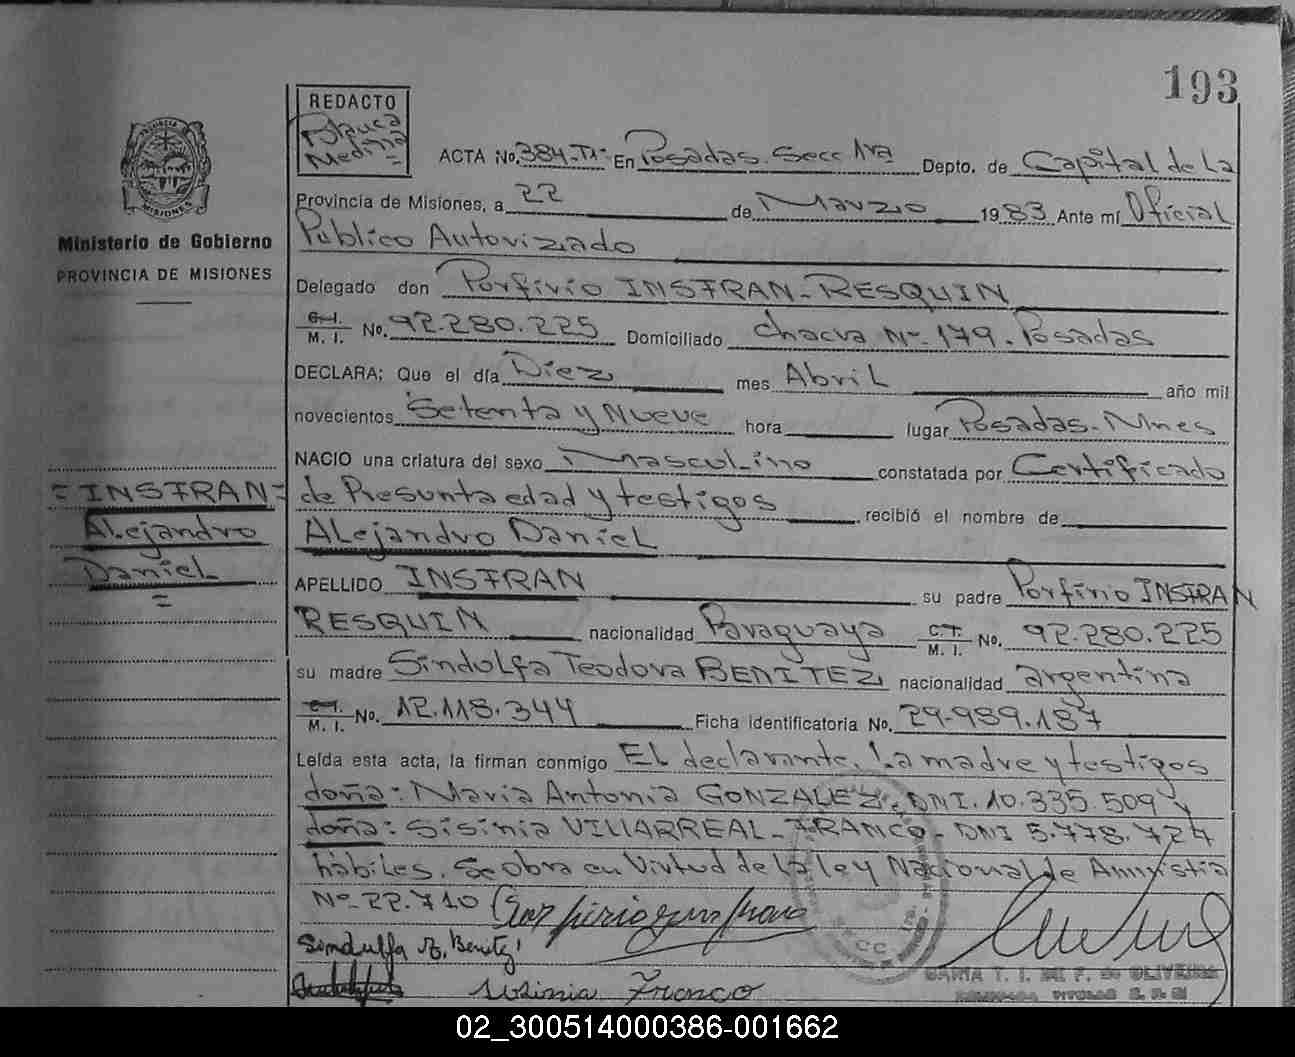 193
REDACTO
Blanca
Medina
=
ACTA No. 384-TI- En Posadas. Secc 1ra Depto. de Capital de La
Provincia de Misiones, a 22 de Marzo 1983 Ante mí Oficial
Público Autorizado
PROVINCIA DE
MISIONES
Ministerio de Gobierno
PROVINCIA DE MISIONES
Delegado don Porfirio INSFRAN-RESQUIN
C. I.
M. I. No. 92.280.225 Domiciliado chacra Nº 179. Posadas
DECLARA; Que el día Diez mes Abril año mil
novecientos Setenta y Nueve hora lugar Posadas-Mnes
NACIO una criatura del sexo Masculino constatada por Certificado
de Presunta edad y testigos recibió el nombre de
Alejandro Daniel
=INSFRAN=
Alejandro
Daniel
=
APELLIDO INSFRAN su padre Porfirio INSFRAN
RESQUIN nacionalidad Paraguaya C.I. M. I. No. 92.280.225
su madre Sindulfa Teodora BENITEZ nacionalidad argentina
C. I.
M. I. No. 12.118.344 Ficha identificatoria No. 29-989.187
Leída esta acta, la firman conmigo El declarante, la madre y testigos
doña: Maria Antonia GONZALEZ, DNI. 10.335.509 y
doña: Sisinia VILLARREAL-FRANCO- DNI 5.778.724
hábiles. Se obra en Virtud de la ley Nacional de Amnistia
Nº 22.710
Sindulfa T. Benitez
Sisinia Franco
MARIA T. I. DE F. de OLIVEIRA
02_300514000386-001662